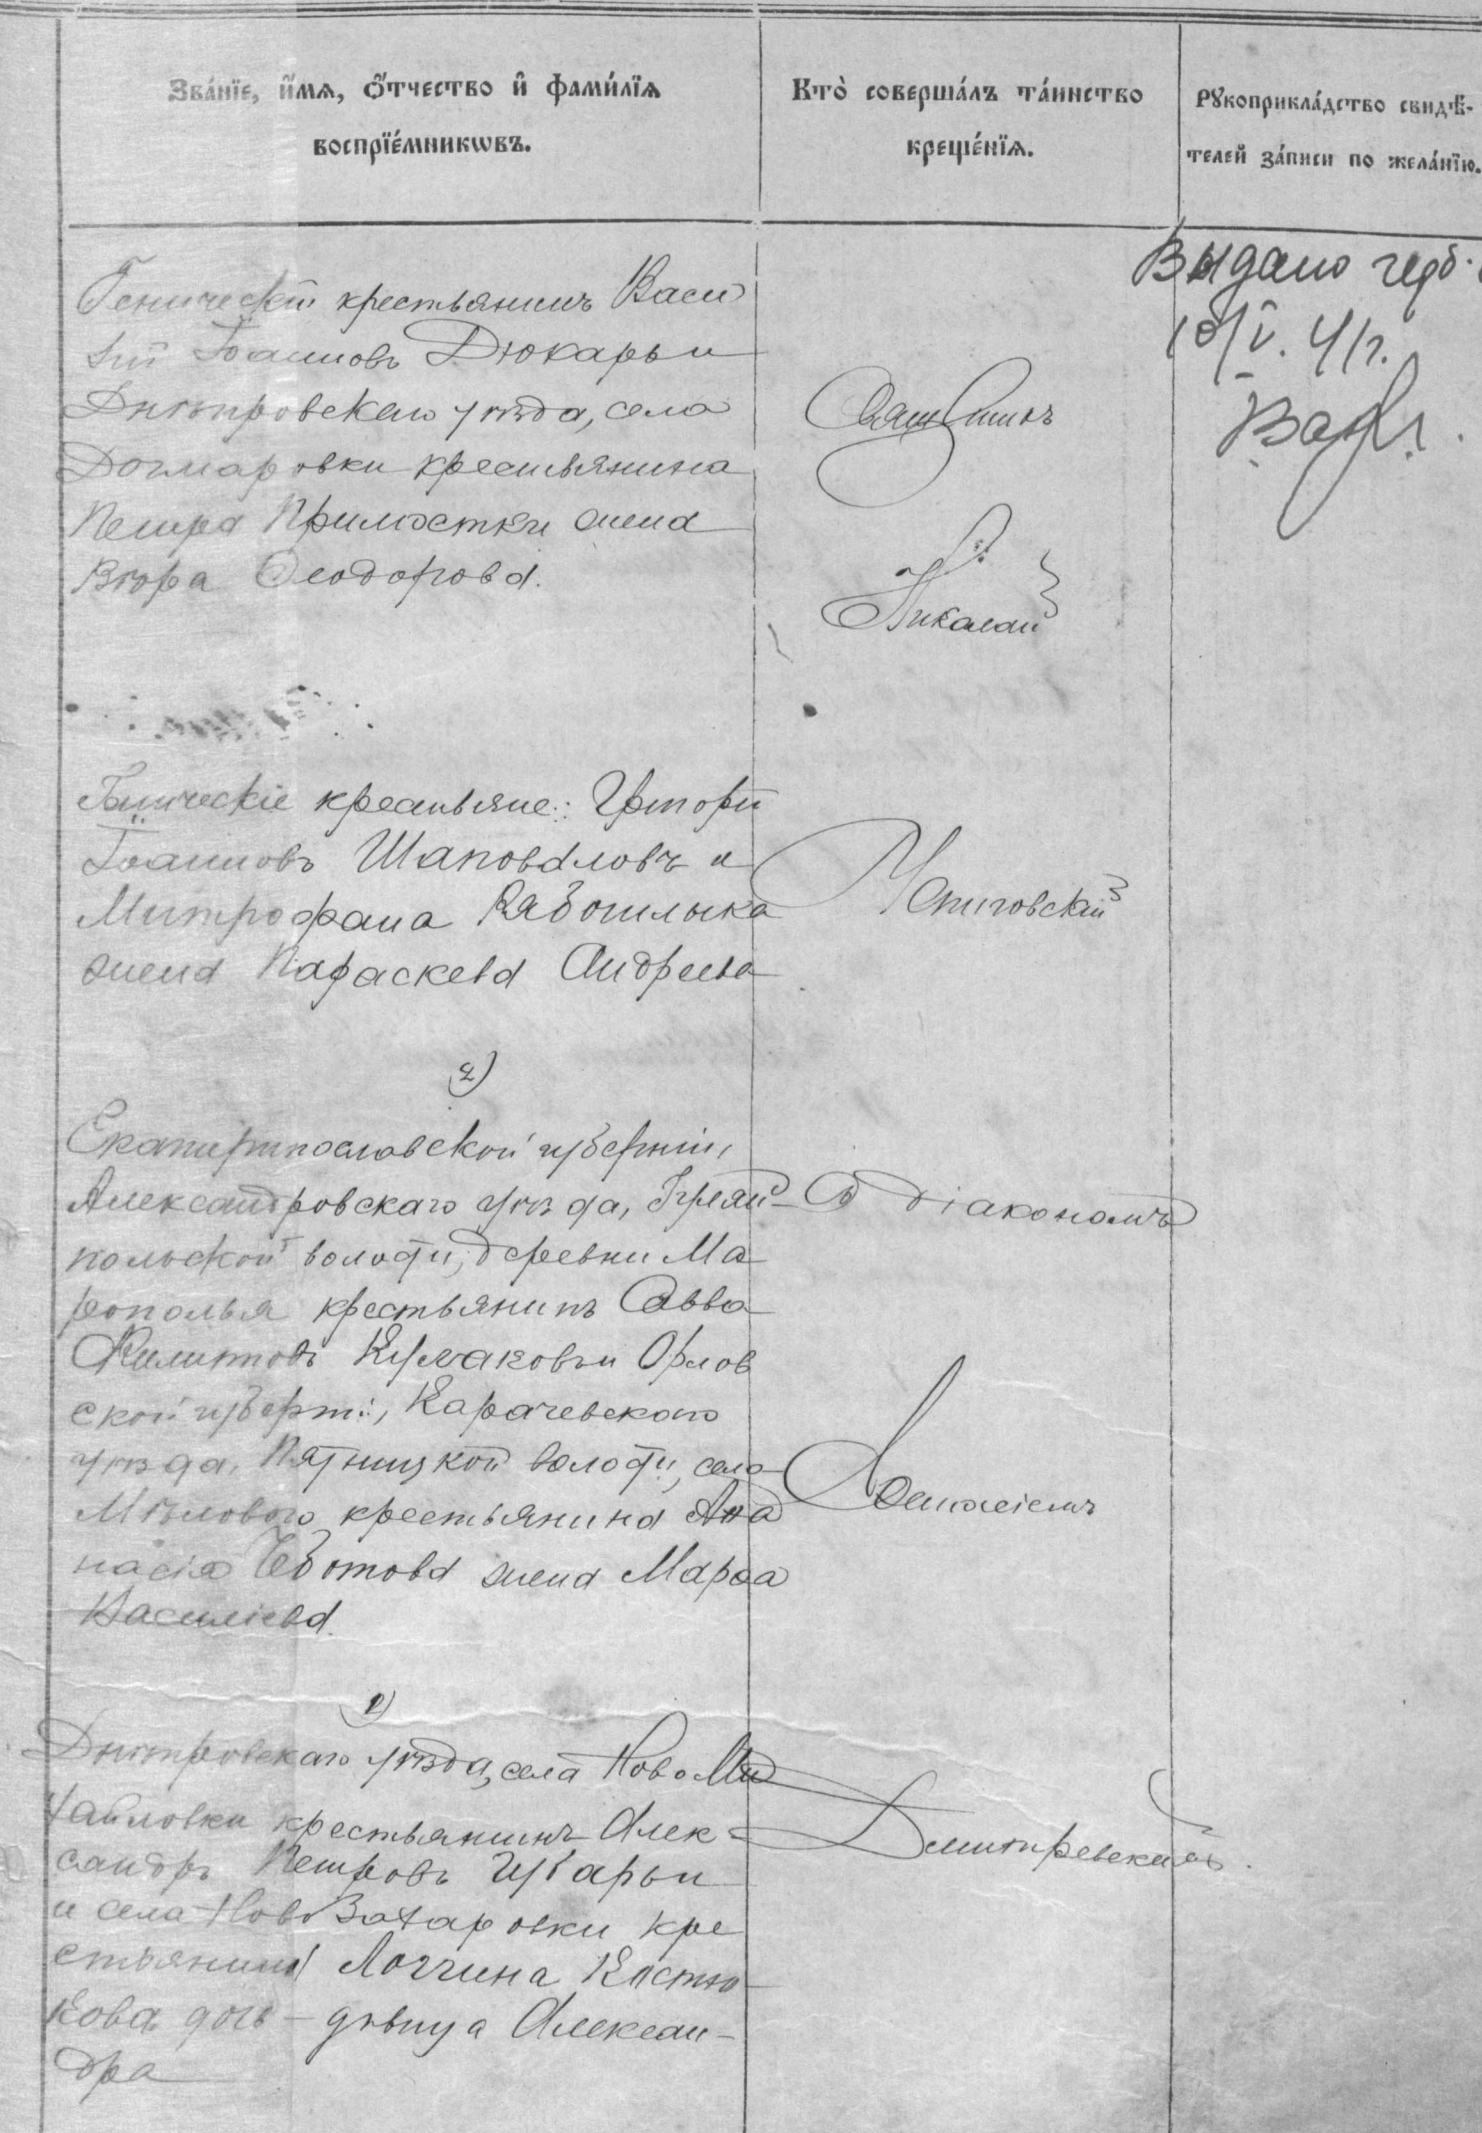 Зва́нїе, и҆́мѧ, ѻ҆́тчество и҆ фами́лїѧ
воспрїе́мникѡвъ.
Кто̀ соверша́лъ та́инство
креще́нїѧ.
Рꙋкоприкла́дство свидѣ́-
телей за́писи по жела́нїю.
Геническій крестьянинъ Васи
лій Іоанновъ Дюкарь и
Днѣпровскаго уѣзда, села
Догмаровки крестьянина
Петра Примостки жена
Вѣра Ѳеодорова.
Геническіе крестьяне: Григорій
Іоанновъ Шаповаловъ и
Митрофана Рябошлыка
жена Параскева Андреева
2)
Екатеринославской губерніи,
Александровскаго уѣзда, Гуляй-
польской волости, деревни Ма
рополья крестьянинъ Савва
Филиповъ Кулаковъ и Орлов
ской губерніи, Карачевскаго
уѣзда, Пятницкой волости, села
Мѣлового крестьянина
насія Чеботова жена Марѳа
Василіева.
2)
Днѣпровскаго уѣзда, села Ново Ми
хайловки крестьянинъ Алек-
сандръ Петровъ Губарь и
и села Ново Захаровки кре
стьянина Логгина Костю-
кова дочь - дѣвица Алексан-
дра
Священникъ
Николай
Чениговскій
съ діакономъ
Алексіемъ
Дмитревскимъ.
Выдано герб.
10/V. 41г.